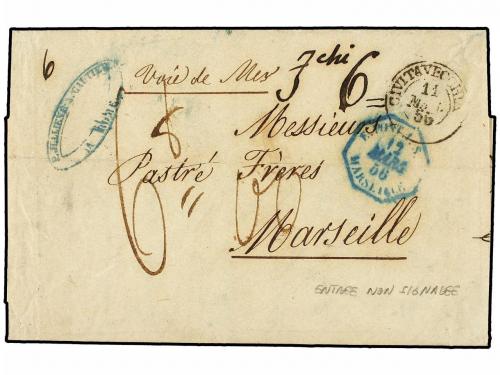 6
Voie de Mer
3 chi 6
CIVITAVECCHIA
11
56
Messieurs
8
Pastré Frères
12
MARS
56
MARSEILLE
Marseille
ENTREE NON SIGNALEE